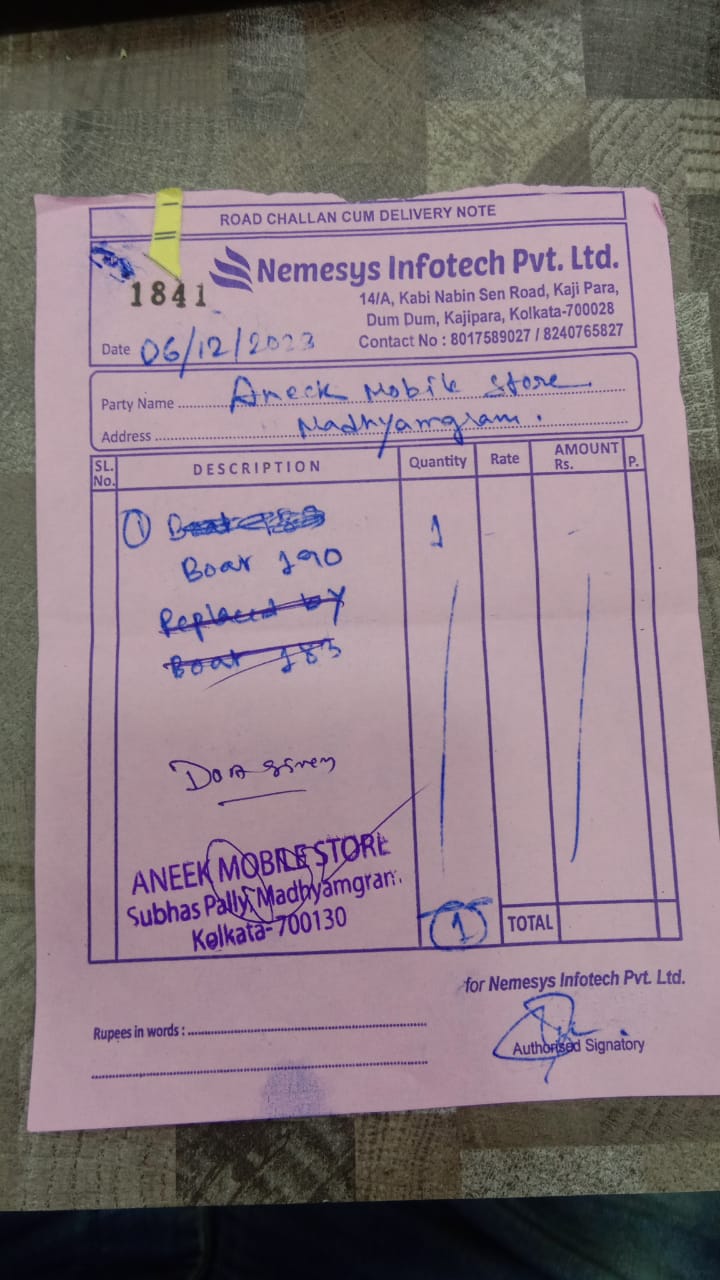 ROAD CHALLAN CUM DELIVERY NOTE
Nemesys Infotech Pvt. Ltd.
1841
14/A, Kabi Nabin Sen Road, Kaji Para,
Dum Dum, Kajipara, Kolkata-700028
Contact No : 8017589027 / 8240765827
Date 06/12/2023
Party Name Aneek Mobile Store
Address Madhyamgram.
SL. No. DESCRIPTION Quantity Rate AMOUNT Rs. P.
① Boat 1
Boat 190
Replaced by
Boat 183
DOA given
ANEEK MOBILE STORE
Subhas Pally, Madhyamgram
Kolkata-700130
1 TOTAL
for Nemesys Infotech Pvt. Ltd.
Rupees in words :
Authorised Signatory